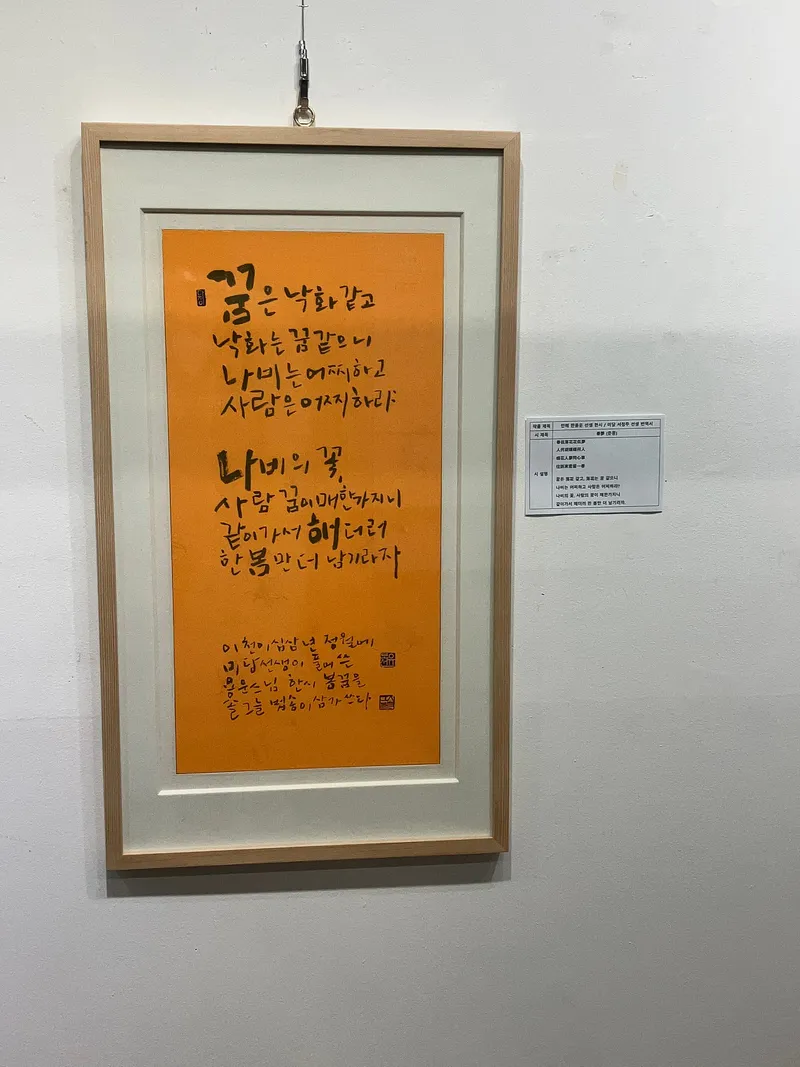 꿈은 낙화 같고
낙화는 꿈 같으니
나비는 어찌하고
사람은 어찌하랴
나비의 꽃,
사람 꿈이 매한가지니
같이 가서 해더러
한 봄만 더 남기라자
이천이십삼년 정월에
미당선생이 풀어 쓴
용운스님 한시 봄꿈을
솔그늘 범송이 삼가 쓰다
작품 제목
만해 한용운 선생 한시 / 미당 서정주 선생 번역시
시 제목
春夢 (춘몽)
시 설명
꿈은 落花 같고, 落花는 꿈 같으니
나비는 어찌하고 사람은 어찌하랴?
나비의 꽃, 사람의 꿈이 매한가지니
같이가서 해더러 한 봄만 더 남기라자.